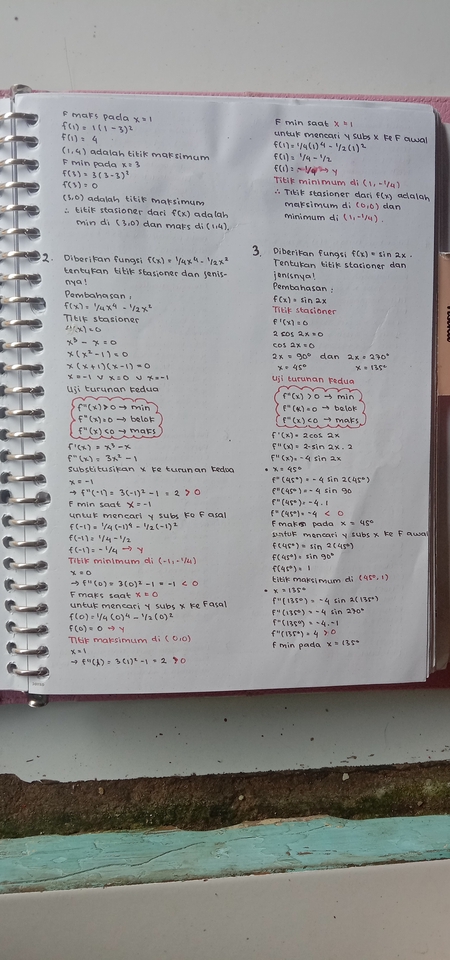 F maks pada x = 1
f(1) = 1(1-3)²
f(1) = 4
(1,4) adalah titik maksimum
F min pada x = 3
f(3) = 3(3-3)²
f(3) = 0
(3,0) adalah titik maksimum
∴ titik stasioner dari f(x) adalah
min di (3,0) dan maks di (1,4).
2. Diberikan fungsi f(x) = 1/4x⁴ - 1/2x²
tentukan titik stasioner dan jenis-
nya!
Pembahasan:
f(x) = 1/4x⁴ - 1/2x²
Titik stasioner
f'(x) = 0
x³ - x = 0
x(x²-1) = 0
x(x+1)(x-1) = 0
x = -1 v x = 0 v x = -1
Uji turunan kedua
f"(x) > 0 → min
f"(x) = 0 → belok
f"(x) < 0 → maks
f'(x) = x³ - x
f"(x) = 3x² - 1
Substitusikan x ke turunan kedua
x = -1
→ f"(-1) = 3(-1)² - 1 = 2 > 0
F min saat x = -1
untuk mencari y subs ke F asal
f(-1) = 1/4(-1)⁴ - 1/2(-1)²
f(-1) = 1/4 - 1/2
f(-1) = -1/4 → y
Titik minimum di (-1, -1/4)
x = 0
→ f"(0) = 3(0)² - 1 = -1 < 0
F maks saat x = 0
untuk mencari y subs x ke F asal
f(0) = 1/4(0)⁴ - 1/2(0)²
f(0) = 0 → y
Titik maksimum di (0,0)
x = 1
→ f"(1) = 3(1)² - 1 = 2 > 0
F min saat x = 1
untuk mencari y subs x ke F awal
f(1) = 1/4(1)⁴ - 1/2(1)²
f(1) = 1/4 - 1/2
f(1) = -1/4 → y
Titik minimum di (1, -1/4)
∴ Titik stasioner dari f(x) adalah
maksimum di (0,0) dan
minimum di (1, -1/4).
3. Diberikan fungsi f(x) = sin 2x.
Tentukan titik stasioner dan
jenisnya!
Pembahasan:
f(x) = sin 2x
Titik stasioner
f'(x) = 0
2 cos 2x = 0
cos 2x = 0
2x = 90° dan 2x = 270°
x = 45° x = 135°
Uji turunan kedua
f"(x) > 0 → min
f"(x) = 0 → belok
f"(x) < 0 → maks
f'(x) = 2 cos 2x
f"(x) = 2 - sin 2x . 2
f"(x) = -4 sin 2x
• x = 45°
f"(45°) = -4 sin 2(45°)
f"(45°) = -4 sin 90
f"(45°) = -4 . 1
f"(45°) = -4 < 0
F maks pada x = 45°
untuk mencari y subs x ke F awal
f(45°) = sin 2(45°)
f(45°) = sin 90°
f(45°) = 1
titik maksimum di (45°, 1)
• x = 135°
f"(135°) = -4 sin 2(135°)
f"(135°) = -4 sin 270°
f"(135°) = -4 . -1
f"(135°) = 4 > 0
F min pada x = 135°